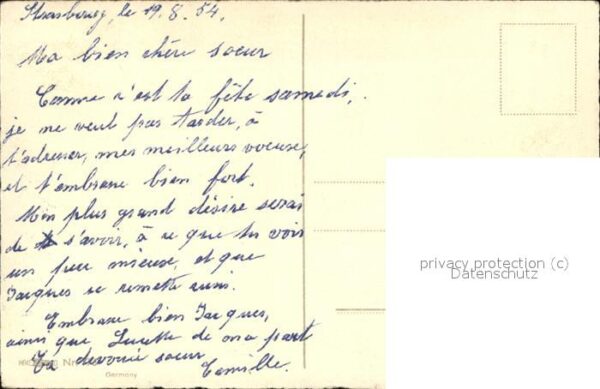 Strasbourg, le 19.8.54.
Ma bien chère soeur
Comme c'est ta fête samedi,
je ne veut pas tarder, à
t'adresser, mes meilleurs voeuse,
et t'embrasse bien fort.
Mon plus grand désire serai
de s'avoir, à ce que tu vois
un peu mieuse, et que
Jacques se remette aussi.
Embrasse bien Jacques,
ainsi que Lucette de ma part
Ta devouée soeur
Camille.
Germany
privacy protection (c)
Datenschutz